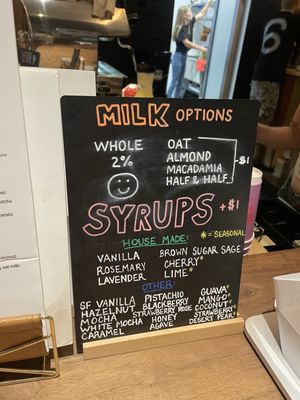 MILK OPTIONS
WHOLE
2%
OAT
ALMOND
MACADAMIA
HALF & HALF
$1
SYRUPS +$1
HOUSE MADE: * = SEASONAL
VANILLA BROWN SUGAR SAGE
ROSEMARY CHERRY*
LAVENDER LIME*
OTHER:
SF VANILLA PISTACHIO GUAVA*
HAZELNUT BLACKBERRY MANGO*
MOCHA STRAWBERRY ROSE COCONUT*
WHITE MOCHA HONEY STRAWBERRY*
CARAMEL AGAVE DESERT PEAR*
6